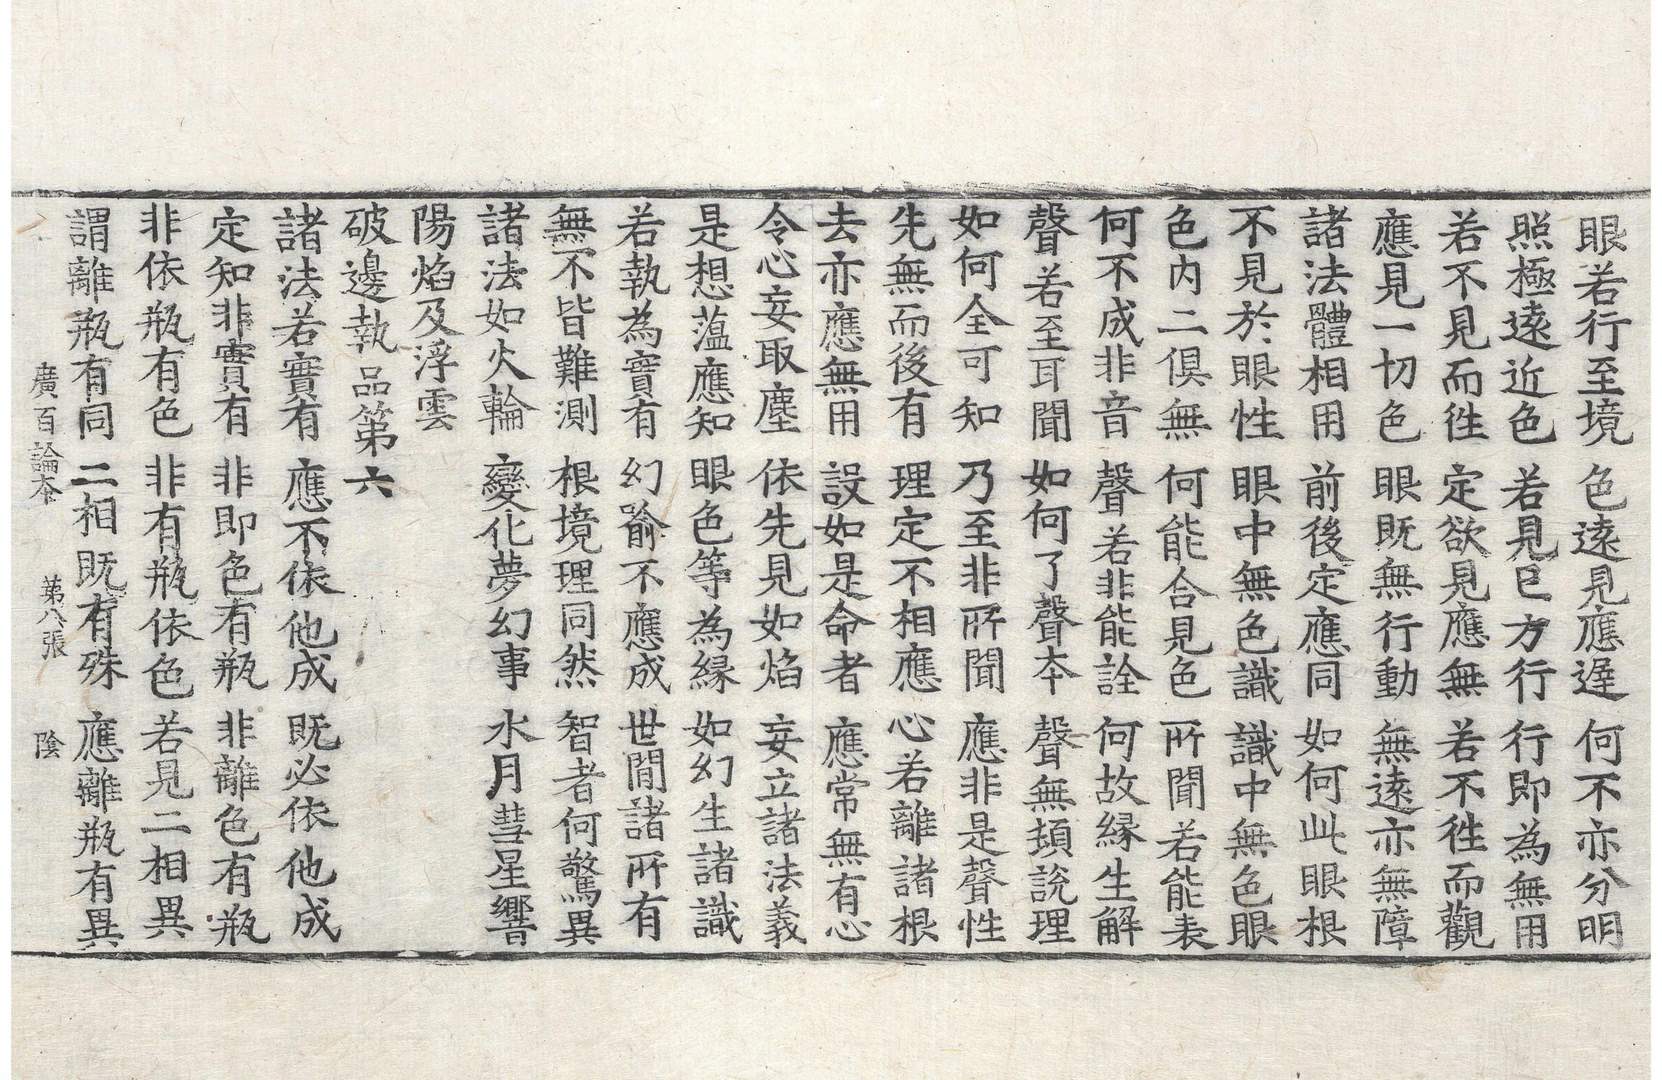 眼若行至境 色遠見應遅 何不亦分明
照極遠近色 若見已方行 行即為無用
若不見而徃 定欲見應無 若不徃而觀
應見一切色 眼既無行動 無遠亦無障
諸法體相用 前後定應同 如何此眼根
不見於眼性 眼中無色識 識中無色眼
色内二俱無 何能合見色 所聞若能表
何不成非音 聲若非能詮 何故縁生解
聲若至耳聞 如何了聲夲 聲無頓說理
如何全可知 乃至非所聞 應非是聲性
先無而後有 理定不相應 心若離諸根
去亦應無用 設如是命者 應常無有心
令心妄取塵 依先見如焰 妄立諸法義
是想薀應知 眼色等為縁 如幻生諸識
若執為實有 幻喻不應成 世間諸所有
無不皆難測 根境理同然 智者何驚異
諸法如火輪 變化夢幻事 水月彗星響
陽焰及浮雲
破邊執品第六
諸法若實有 應不依他成 既必依他成
定知非實有 非即色有瓶 非離色有瓶
非依瓶有色 非有瓶依色 若見二相異
謂離瓶有同 二相既有殊 應離瓶有異
廣百論夲 第八張 陰